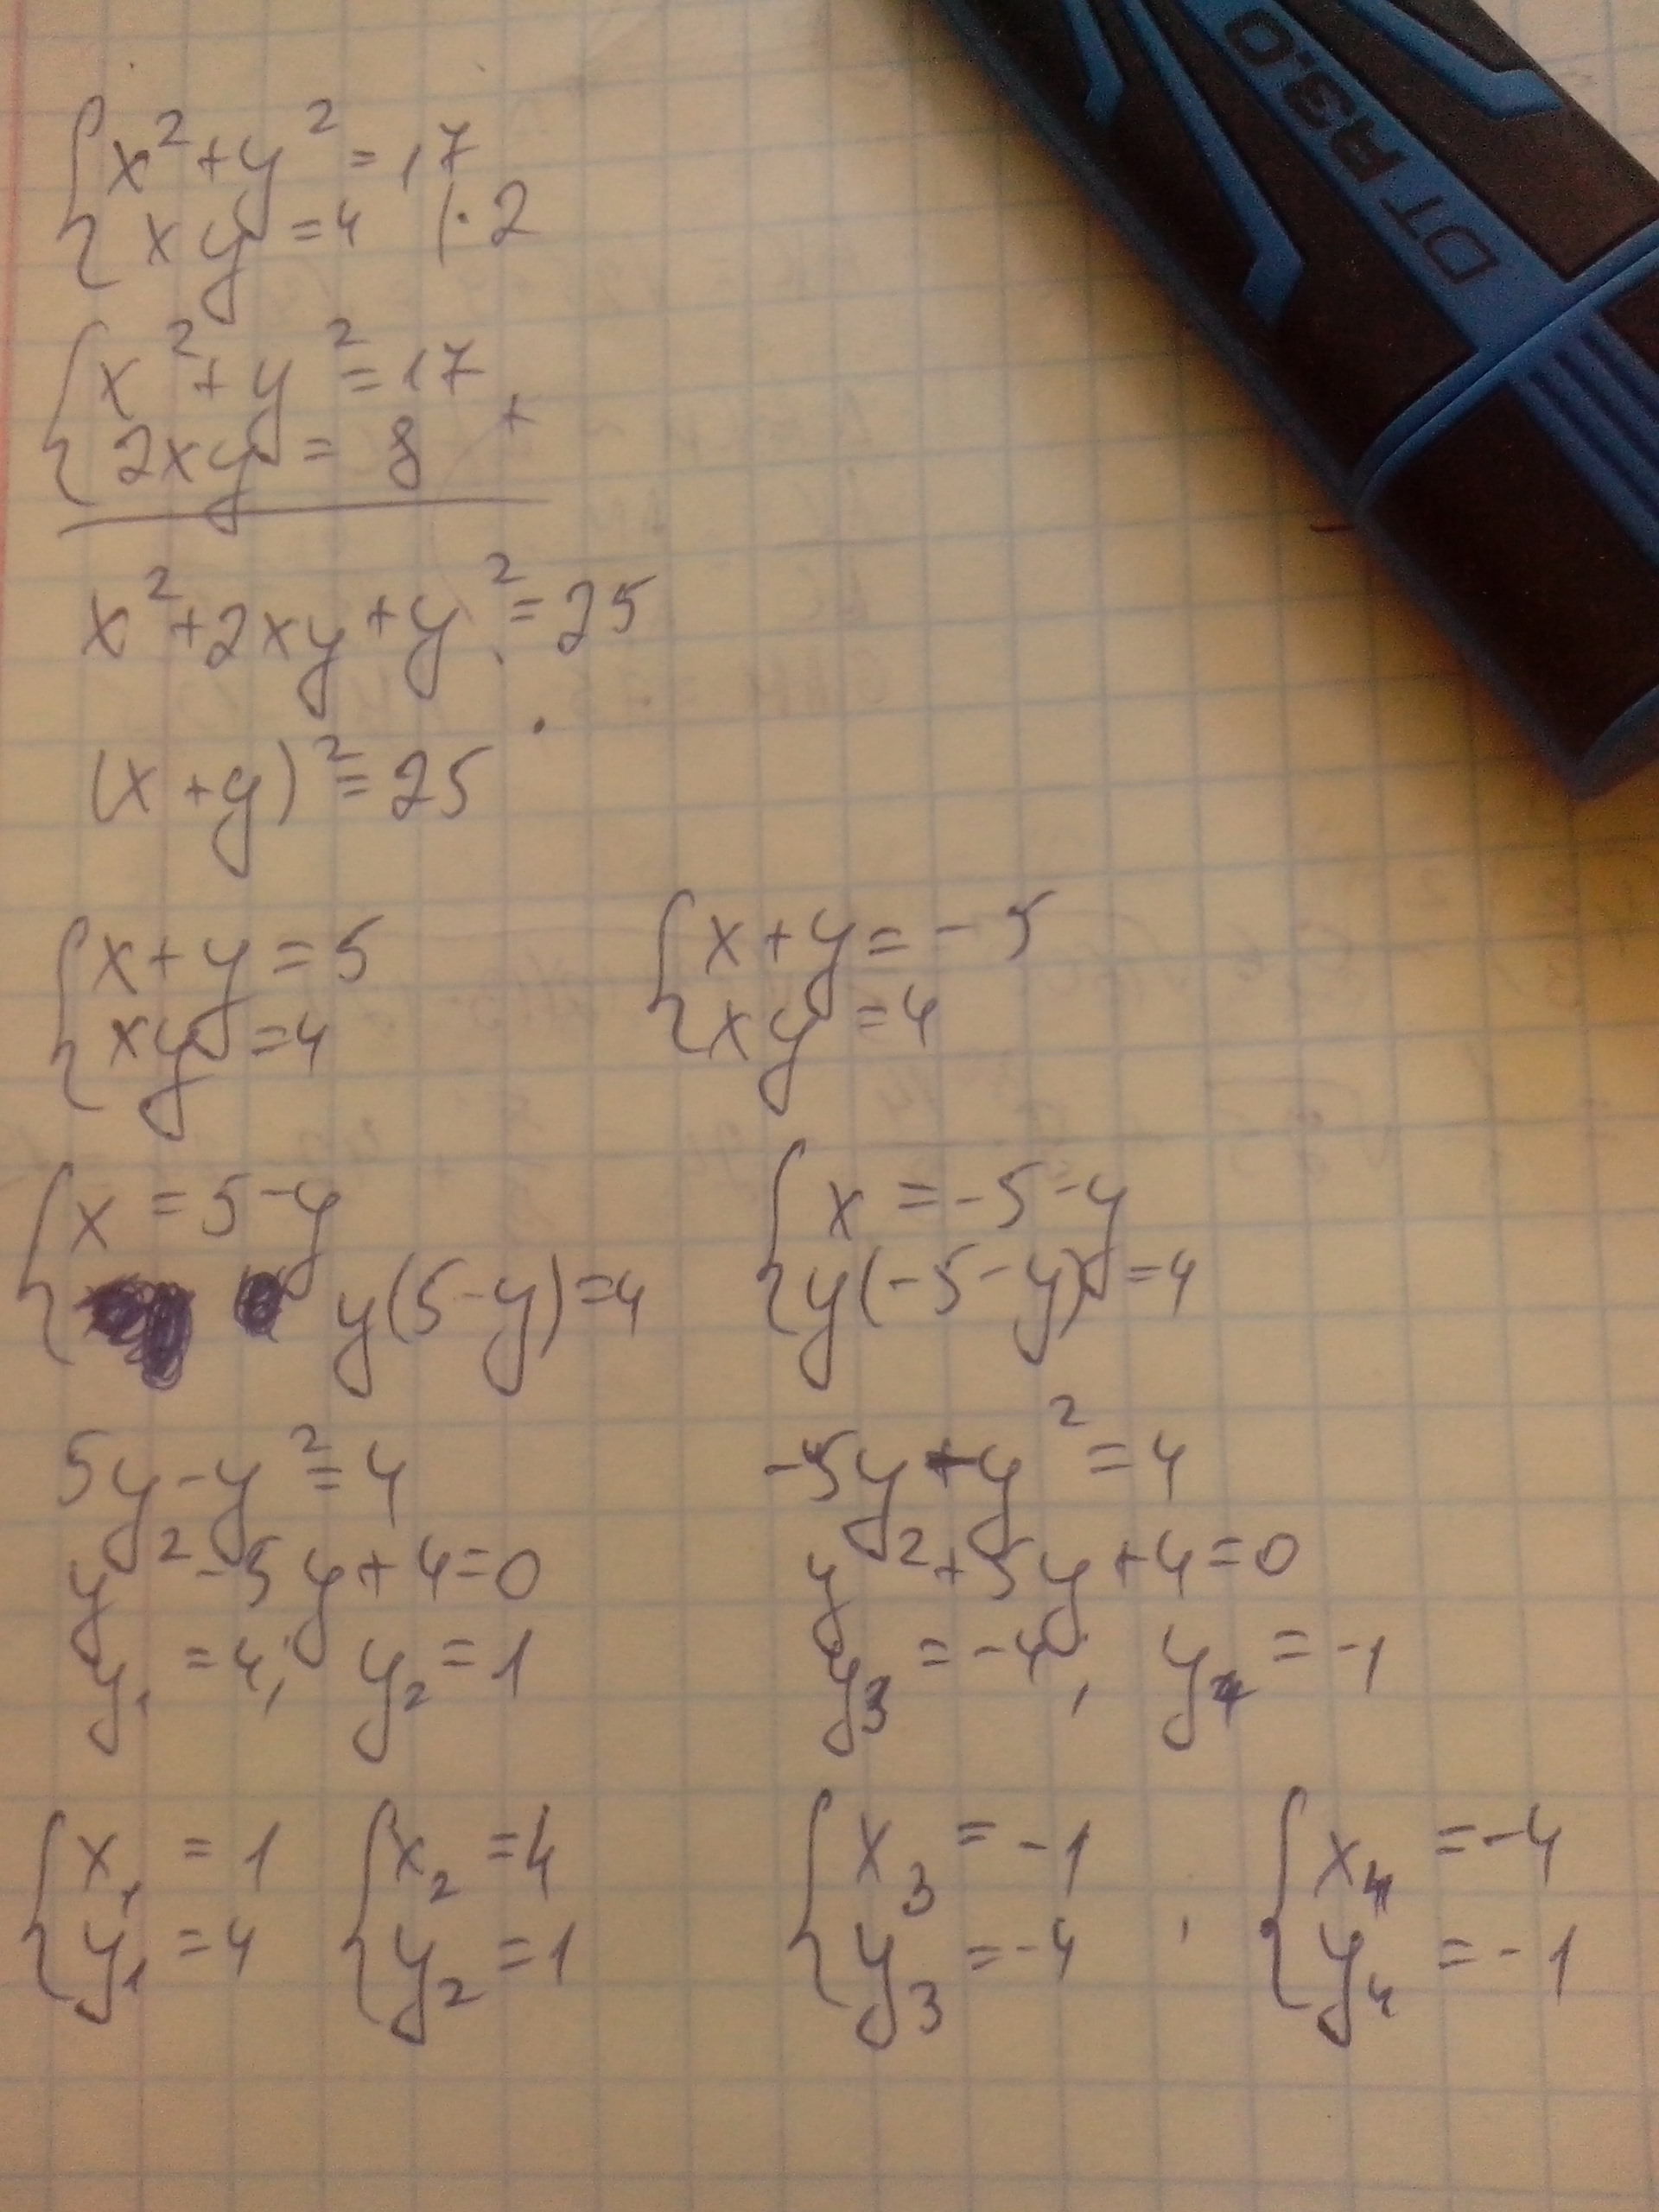 x² + y² = 17
xy = 4 | · 2
x² + y² = 17
2xy = 8 +
x² + 2xy + y² = 25
(x + y)² = 25
x + y = 5
xy = 4
x + y = -5
xy = 4
x = 5 - y
y(5 - y) = 4
x = -5 - y
y(-5 - y) = 4
5y - y² = 4
y² - 5y + 4 = 0
y₁ = 4; y₂ = 1
-5y - y² = 4
y² + 5y + 4 = 0
y₃ = -4; y₄ = -1
x₁ = 1
y₁ = 4
x₂ = 4
y₂ = 1
x₃ = -1
y₃ = -4
x₄ = -4
y₄ = -1
DT R3.0